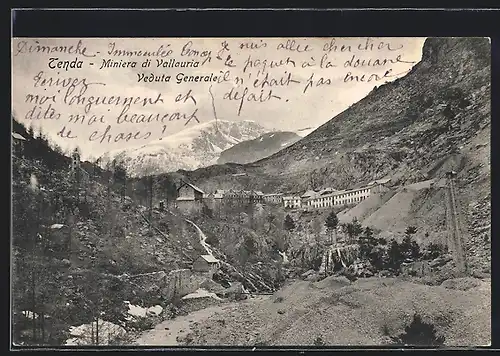 Dimanche - Immaculée Conc. Je suis allée chercher
Tenda - Miniera di Vallauria
le paquet à la douane
Veduta Generale
il n'était pas encore
défait
Ecrivez
moi longuement et
dites moi beaucoup
de choses!